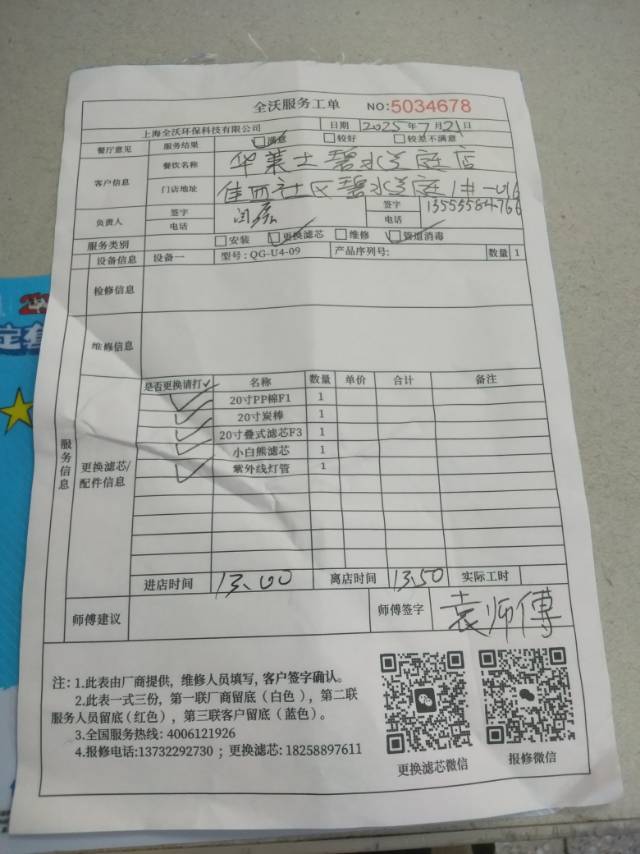 全沃服务工单 NO:5034678
上海全沃环保科技有限公司 日期 2025年7月21日
餐厅意见 服务结果 满意 较好 较差不满意
客户信息 餐饮名称 华莱士碧水学庭店
门店地址 佳西社区碧水学庭1#-
负责人 签字 签字
电话 电话 13553584766
服务类别 安装 更换滤芯 维修 管道消毒
设备信息 设备一 型号:QG-U4-09 产品序列号: 数量 1
检修信息
维修信息
服务信息
更换滤芯/配件信息
是否更换请打✓ 名称 数量 单价 合计 备注
✓ 20寸PP棉F1 1
✓ 20寸炭棒 1
✓ 20寸叠式滤芯F3 1
✓ 小白熊滤芯 1
✓ 紫外线灯管 1
进店时间 13.00 离店时间 13.50 实际工时
师傅建议 师傅签字 袁师傅
注:1.此表由厂商提供,维修人员填写,客户签字确认。
2.此表一式三份,第一联厂商留底(白色),第二联
服务人员留底(红色),第三联客户留底(蓝色)。
3.全国服务热线:4006121926
4.报修电话:13732292730;更换滤芯:18258897611
更换滤芯微信 报修微信